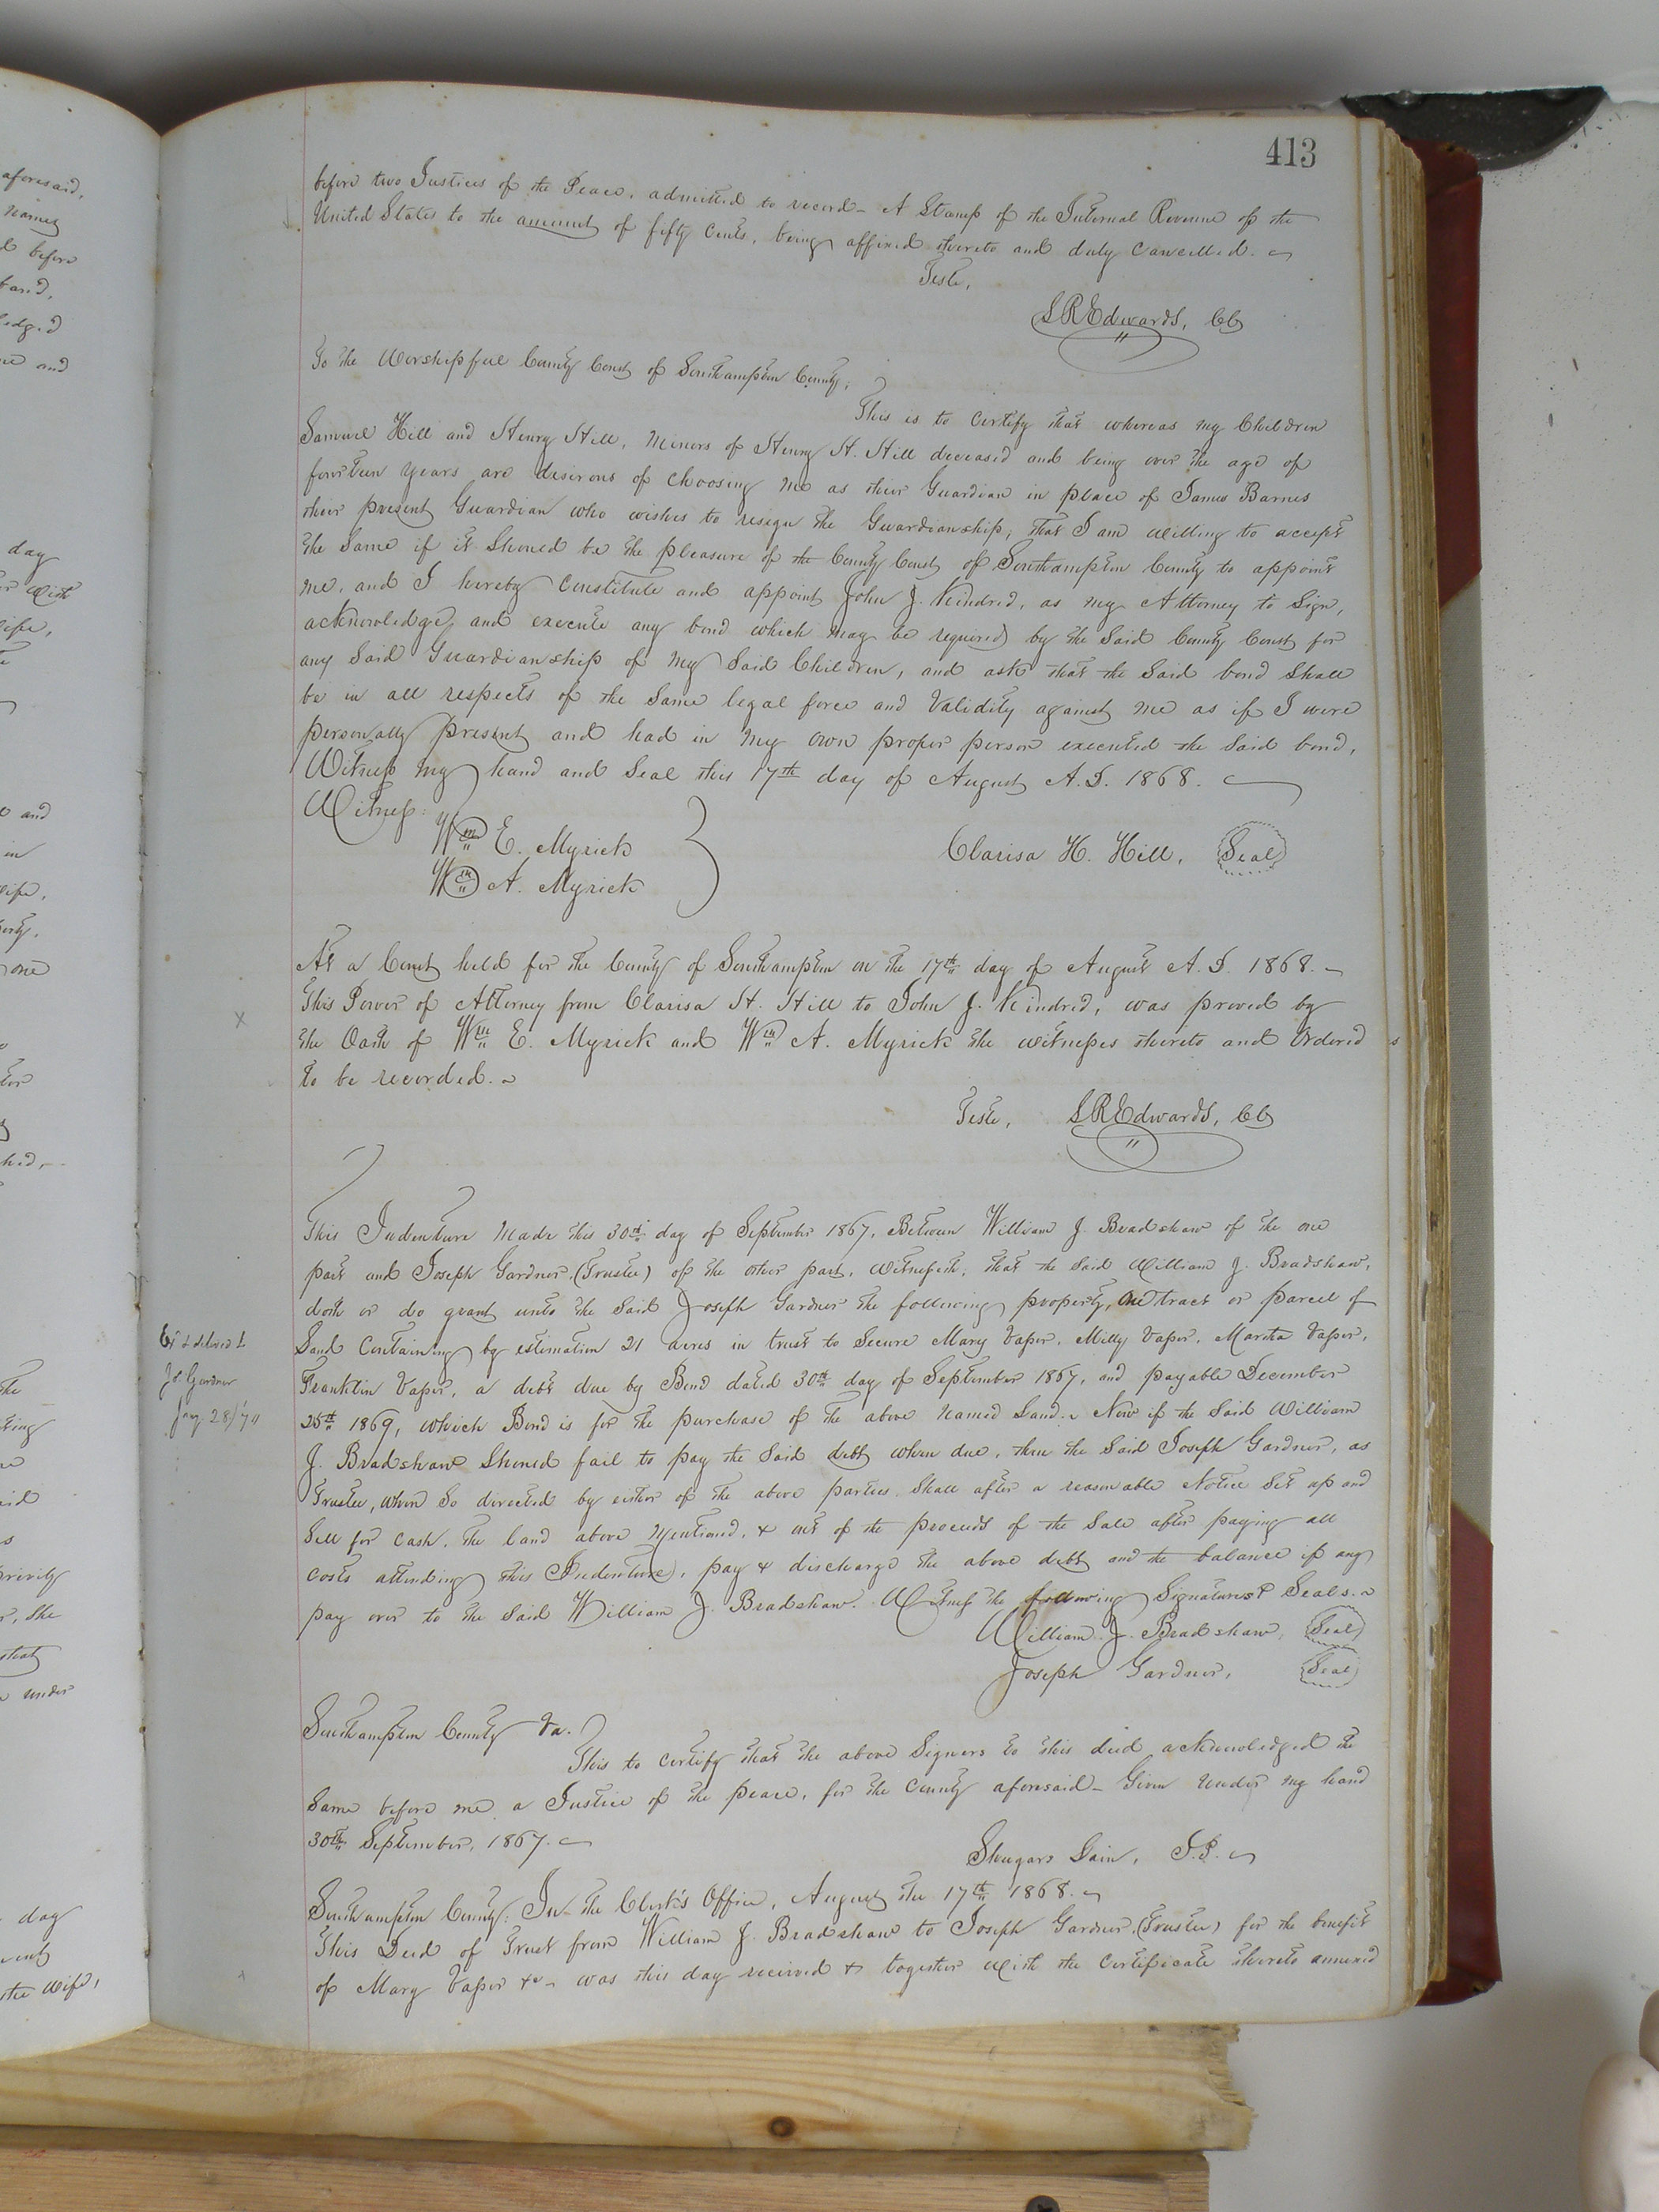 413
before two Justices of the Peace, admitted to record – A Stamp of the Internal Revenue of the
United States to the amount of fifty cents, being affixed thereto and duly cancelled.
Teste,
LREdwards, CC
To the Worshipful County Court of Southampton County;
This is to certify that whereas my Children
Samuel Hill and Henry Hill, Minors of Henry H. Hill deceased and being over the age of
fourteen years are desirous of choosing me as their Guardian in place of James Barnes
their present Guardian who wishes to resign the Guardianship; that I am willing to accept
the Same if it Should be the pleasure of the County Court of Southampton County to appoint
me, and I hereby constitute and appoint John J. Kindred, as my Attorney to Sign,
acknowledge, and execute any bond which may be required by the Said County Court for
any Said Guardianship of my Said Children, and ask that the Said bond Shall
be in all respects of the Same legal force and Validity against me as if I were
personally present and had in my own proper person executed the Said bond,
Witness my hand and Seal this 17th day of August A.D. 1868.
Witness:
Wm E. Myrick
Clarisa H. Hill, Seal
Wm A. Myrick
At a Court held for the County of Southampton on the 17th day of August A.D. 1868.
This Power of Attorney from Clarisa H. Hill to John J. Kindred, was proved by
the Oath of Wm E. Myrick and Wm A. Myrick the witnesses thereto and Ordered
to be recorded.
Teste, LREdwards, CC
This Indenture Made this 30th day of September 1867, Between William J. Bradshaw of the one
part and Joseph Gardner, (Trustee) of the other part, witnesseth, that the Said William J. Bradshaw,
doth or do grant unto the Said Joseph Gardner the following property, One tract or parcel of
Land Containing by estimation 21 acres in trust to Secure Mary Vaper, Milly Vaper, Martha Vaper,
Franklin Vaper, a debt due by Bond dated 30th day of September 1867, and payable December
25th 1869, which Bond is for the purchase of the above named Land. Now if the Said William
J. Bradshaw Should fail to pay the Said debt when due, then the Said Joseph Gardner, as
Trustee, when So directed by either of the above parties Shall after a reasonable Notice Set up and
Sell for cash, the land above Mentioned, & out of the proceeds of the Sale after paying all
costs attending this Indenture, pay & discharge the above debt and the balance if any
pay over to the Said William J. Bradshaw. Witness the following Signatures & Seals.
William J. Bradshaw, Seal
Joseph Gardner, Seal
Ex & delivered to
Js Gardner
Jany 28/70
Southampton County Va.
This to certify that the above Signers to this deed acknowledged the
Same before me a Justice of the peace, for the County aforesaid – Given under my hand
30th September, 1867.
Shugars Lain, J.P.
Southampton County: In the Clerk's Office, August the 17th 1868.
This Deed of Trust from William J. Bradshaw to Joseph Gardner, (Trustee) for the benefit
of Mary Vaper &c – was this day received & together with the certificate thereto annexed